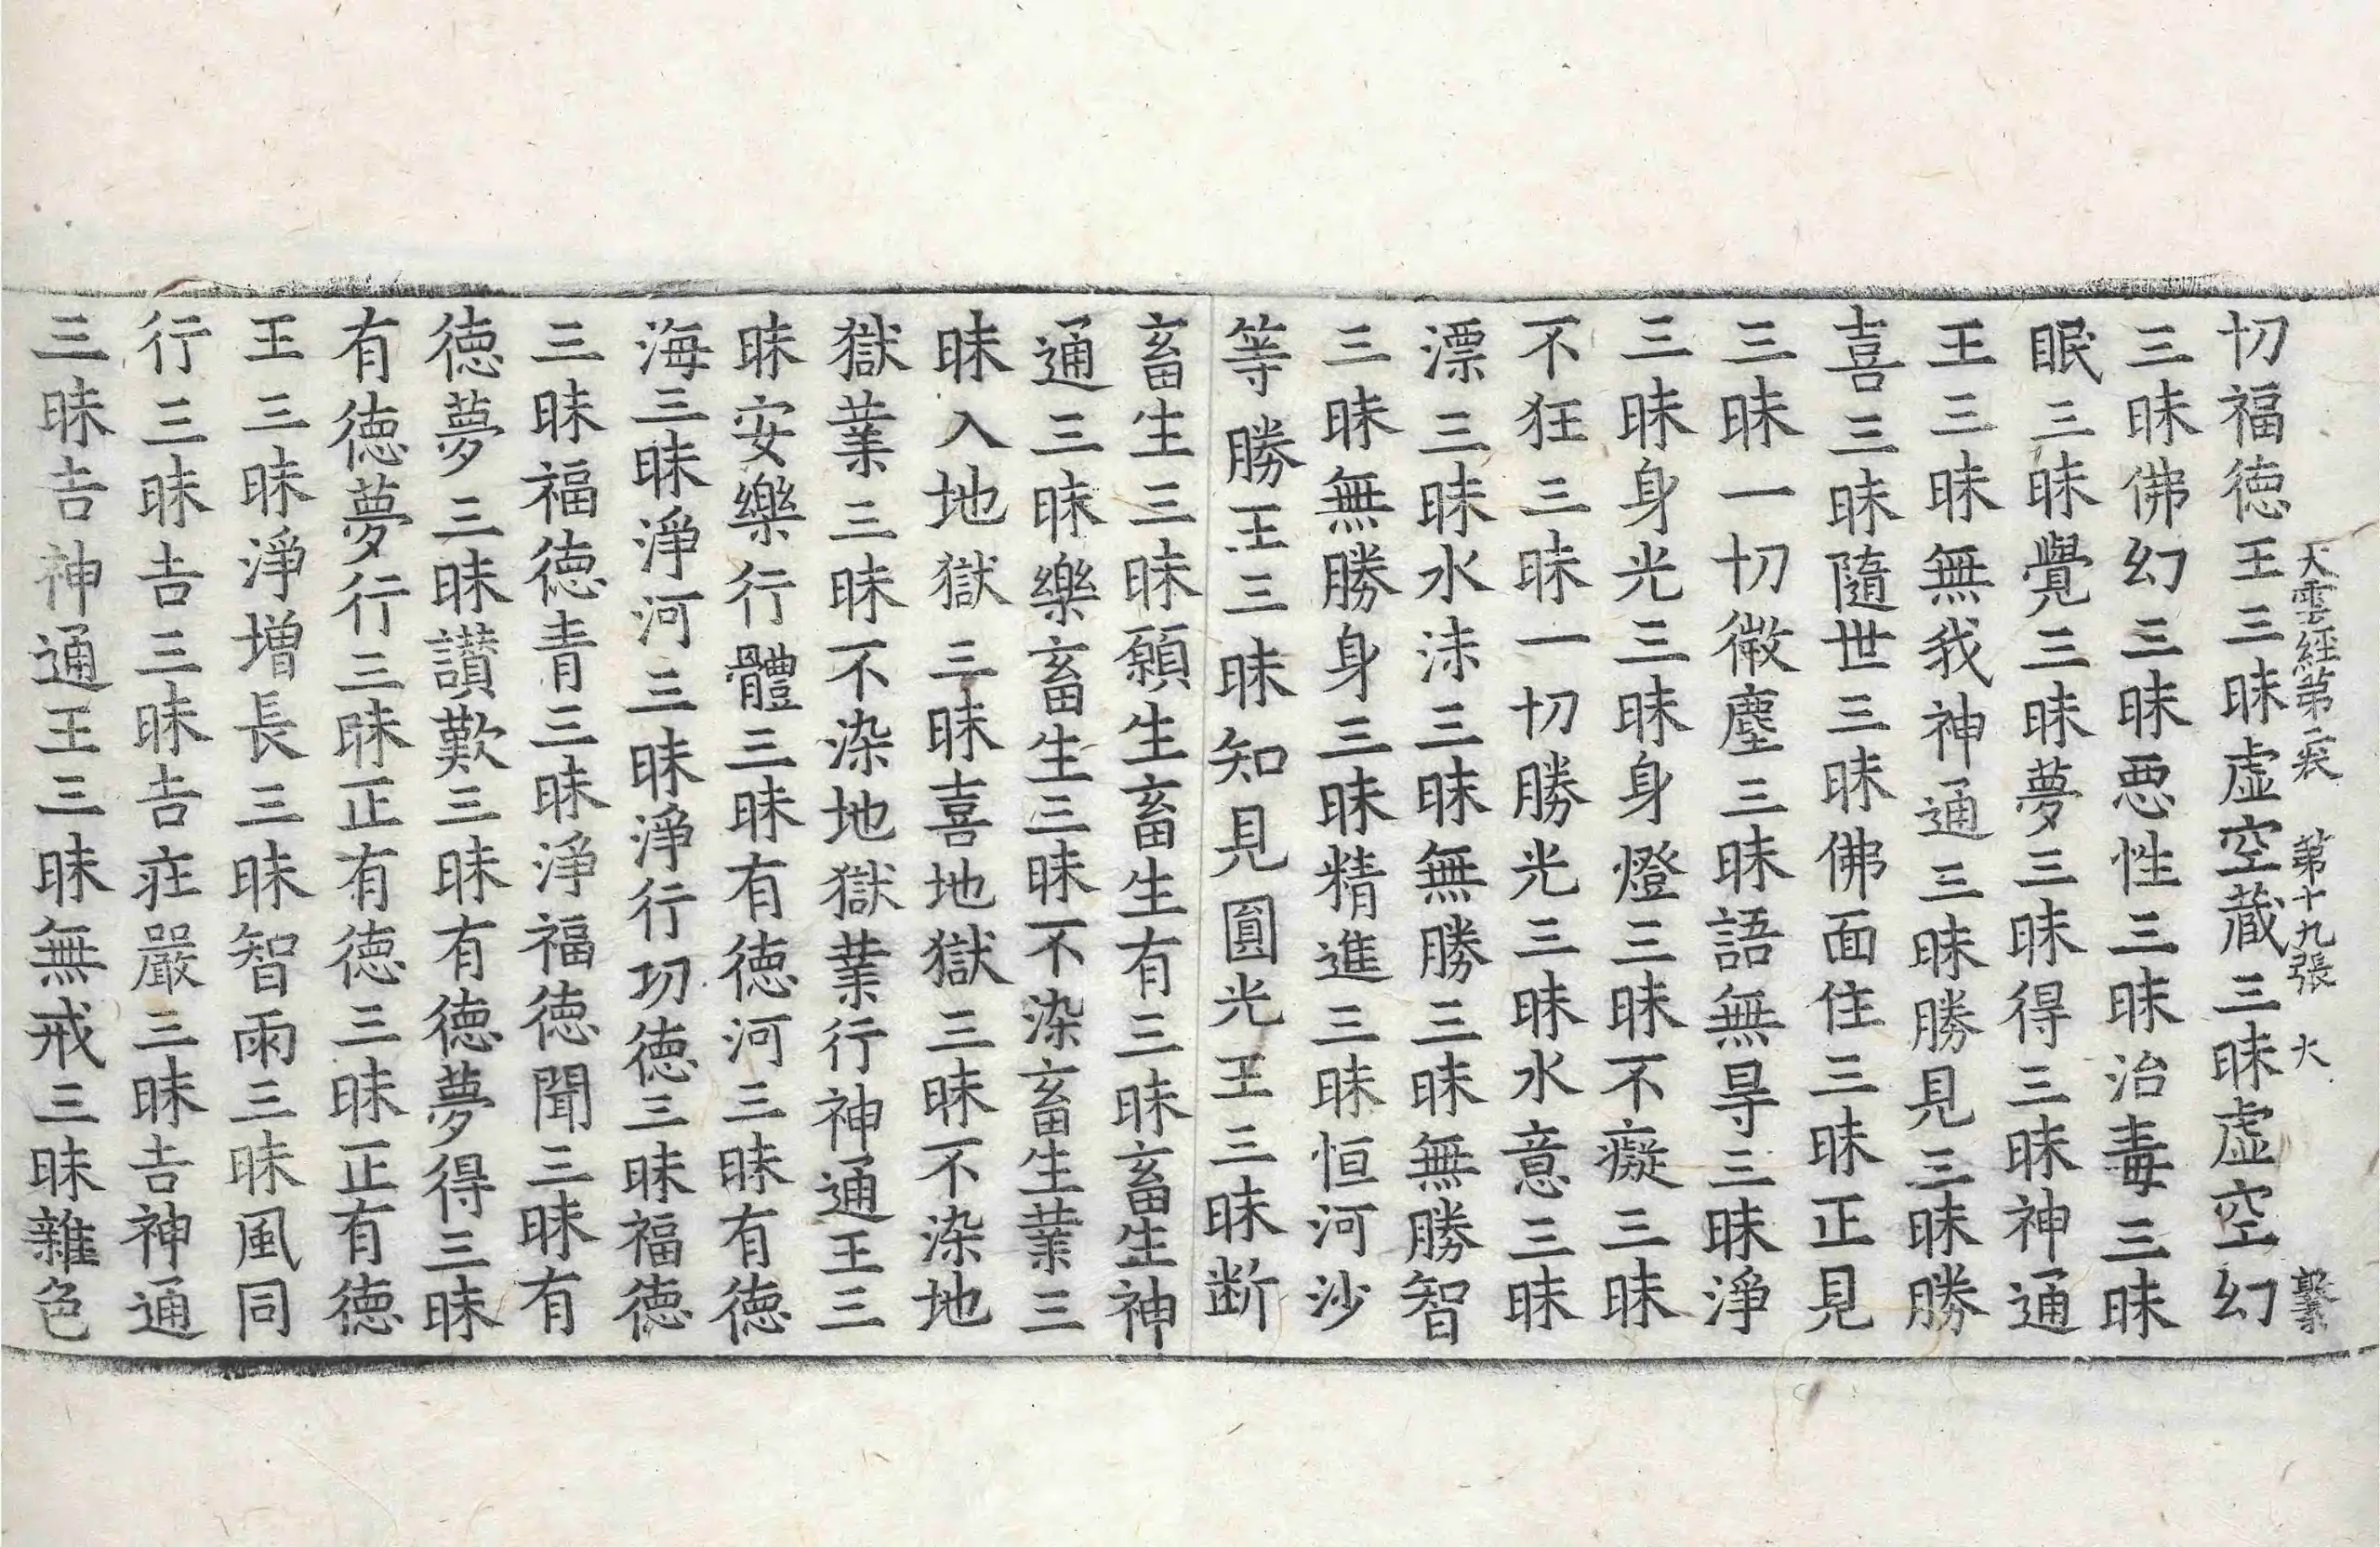 大雲經第二 第十九張 大
切福德王三昧虛空藏三昧虛空幻
三昧佛幻三昧惡性三昧治毒三昧
眠三昧覺三昧夢三昧得三昧神通
王三昧無我神通三昧勝見三昧勝
喜三昧隨世三昧佛面住三昧正見
三昧一切微塵三昧語無㝵三昧淨
三昧身光三昧身燈三昧不癡三昧
不狂三昧一切勝光三昧水意三昧
漂三昧水沫三昧無勝三昧無勝智
三昧無勝身三昧精進三昧恒河沙
等勝王三昧知見圓光王三昧断
畜生三昧願生畜生有三昧畜生神
通三昧樂畜生三昧不染畜生業三
昧入地獄三昧喜地獄三昧不染地
獄業三昧不染地獄業行神通王三
昧安樂行體三昧有德河三昧有德
海三昧淨河三昧淨行功德三昧福德
三昧福德青三昧淨福德聞三昧有
德夢三昧讃歎三昧有德夢得三昧
有德夢行三昧正有德三昧正有德
王三昧淨增長三昧智雨三昧風同
行三昧吉三昧吉莊嚴三昧吉神通
三昧吉神通王三昧無戒三昧雜色